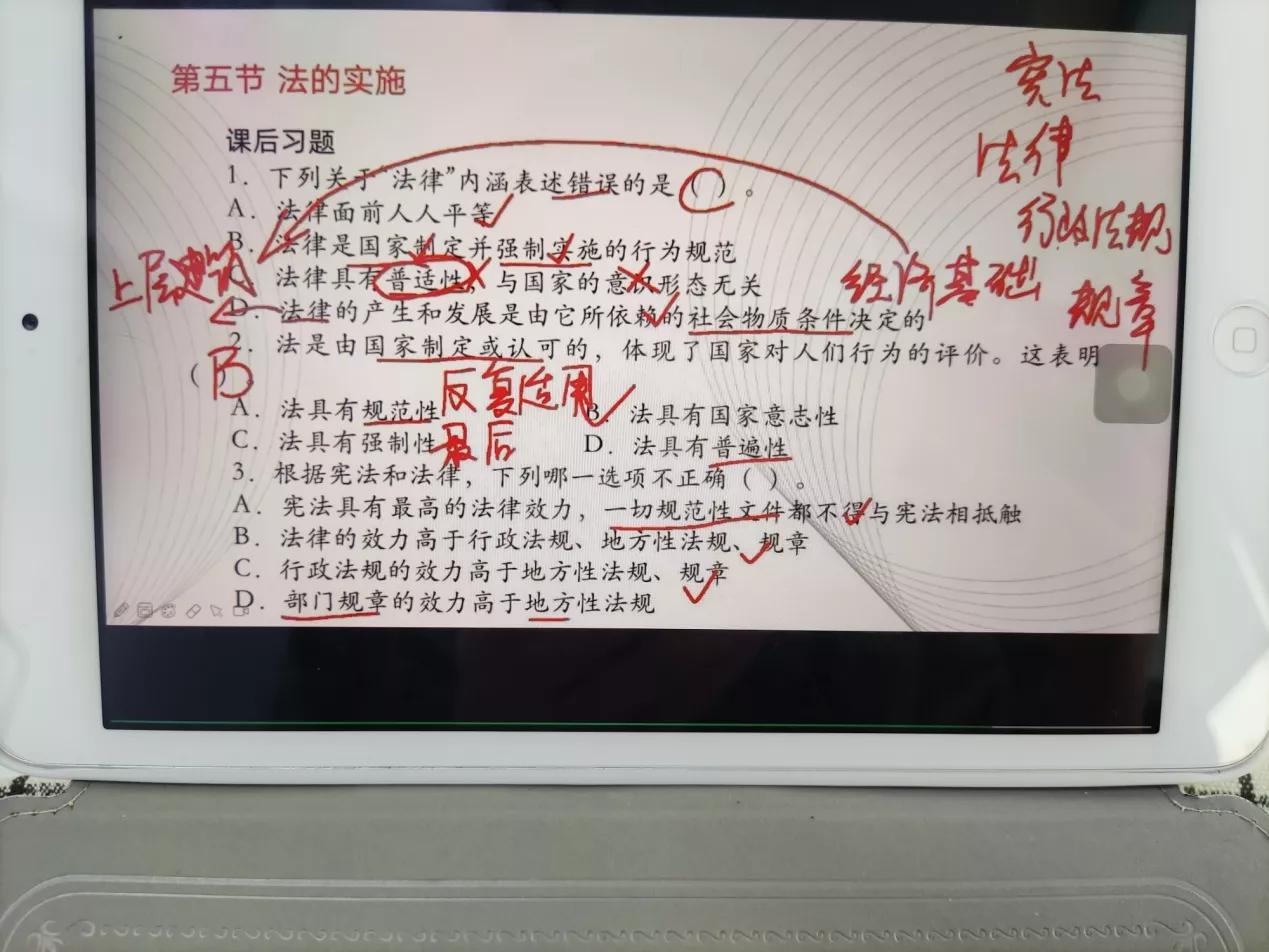 第五节 法的实施
宪法
法律
行政法规
规章
经济基础
上层建筑
课后习题
1. 下列关于“法律”内涵表述错误的是（ ）。
A. 法律面前人人平等
B. 法律是国家制定并强制实施的行为规范
C. 法律具有普适性，与国家的意识形态无关
D. 法律的产生和发展是由它所依赖的社会物质条件决定的
2. 法是由国家制定或认可的，体现了国家对人们行为的评价。这表明
（ B ）。
A. 法具有规范性 反复适用 B. 法具有国家意志性
C. 法具有强制性 最后 D. 法具有普遍性
3. 根据宪法和法律，下列哪一选项不正确（ ）。
A. 宪法具有最高的法律效力，一切规范性文件都不得与宪法相抵触
B. 法律的效力高于行政法规、地方性法规、规章
C. 行政法规的效力高于地方性法规、规章
D. 部门规章的效力高于地方性法规